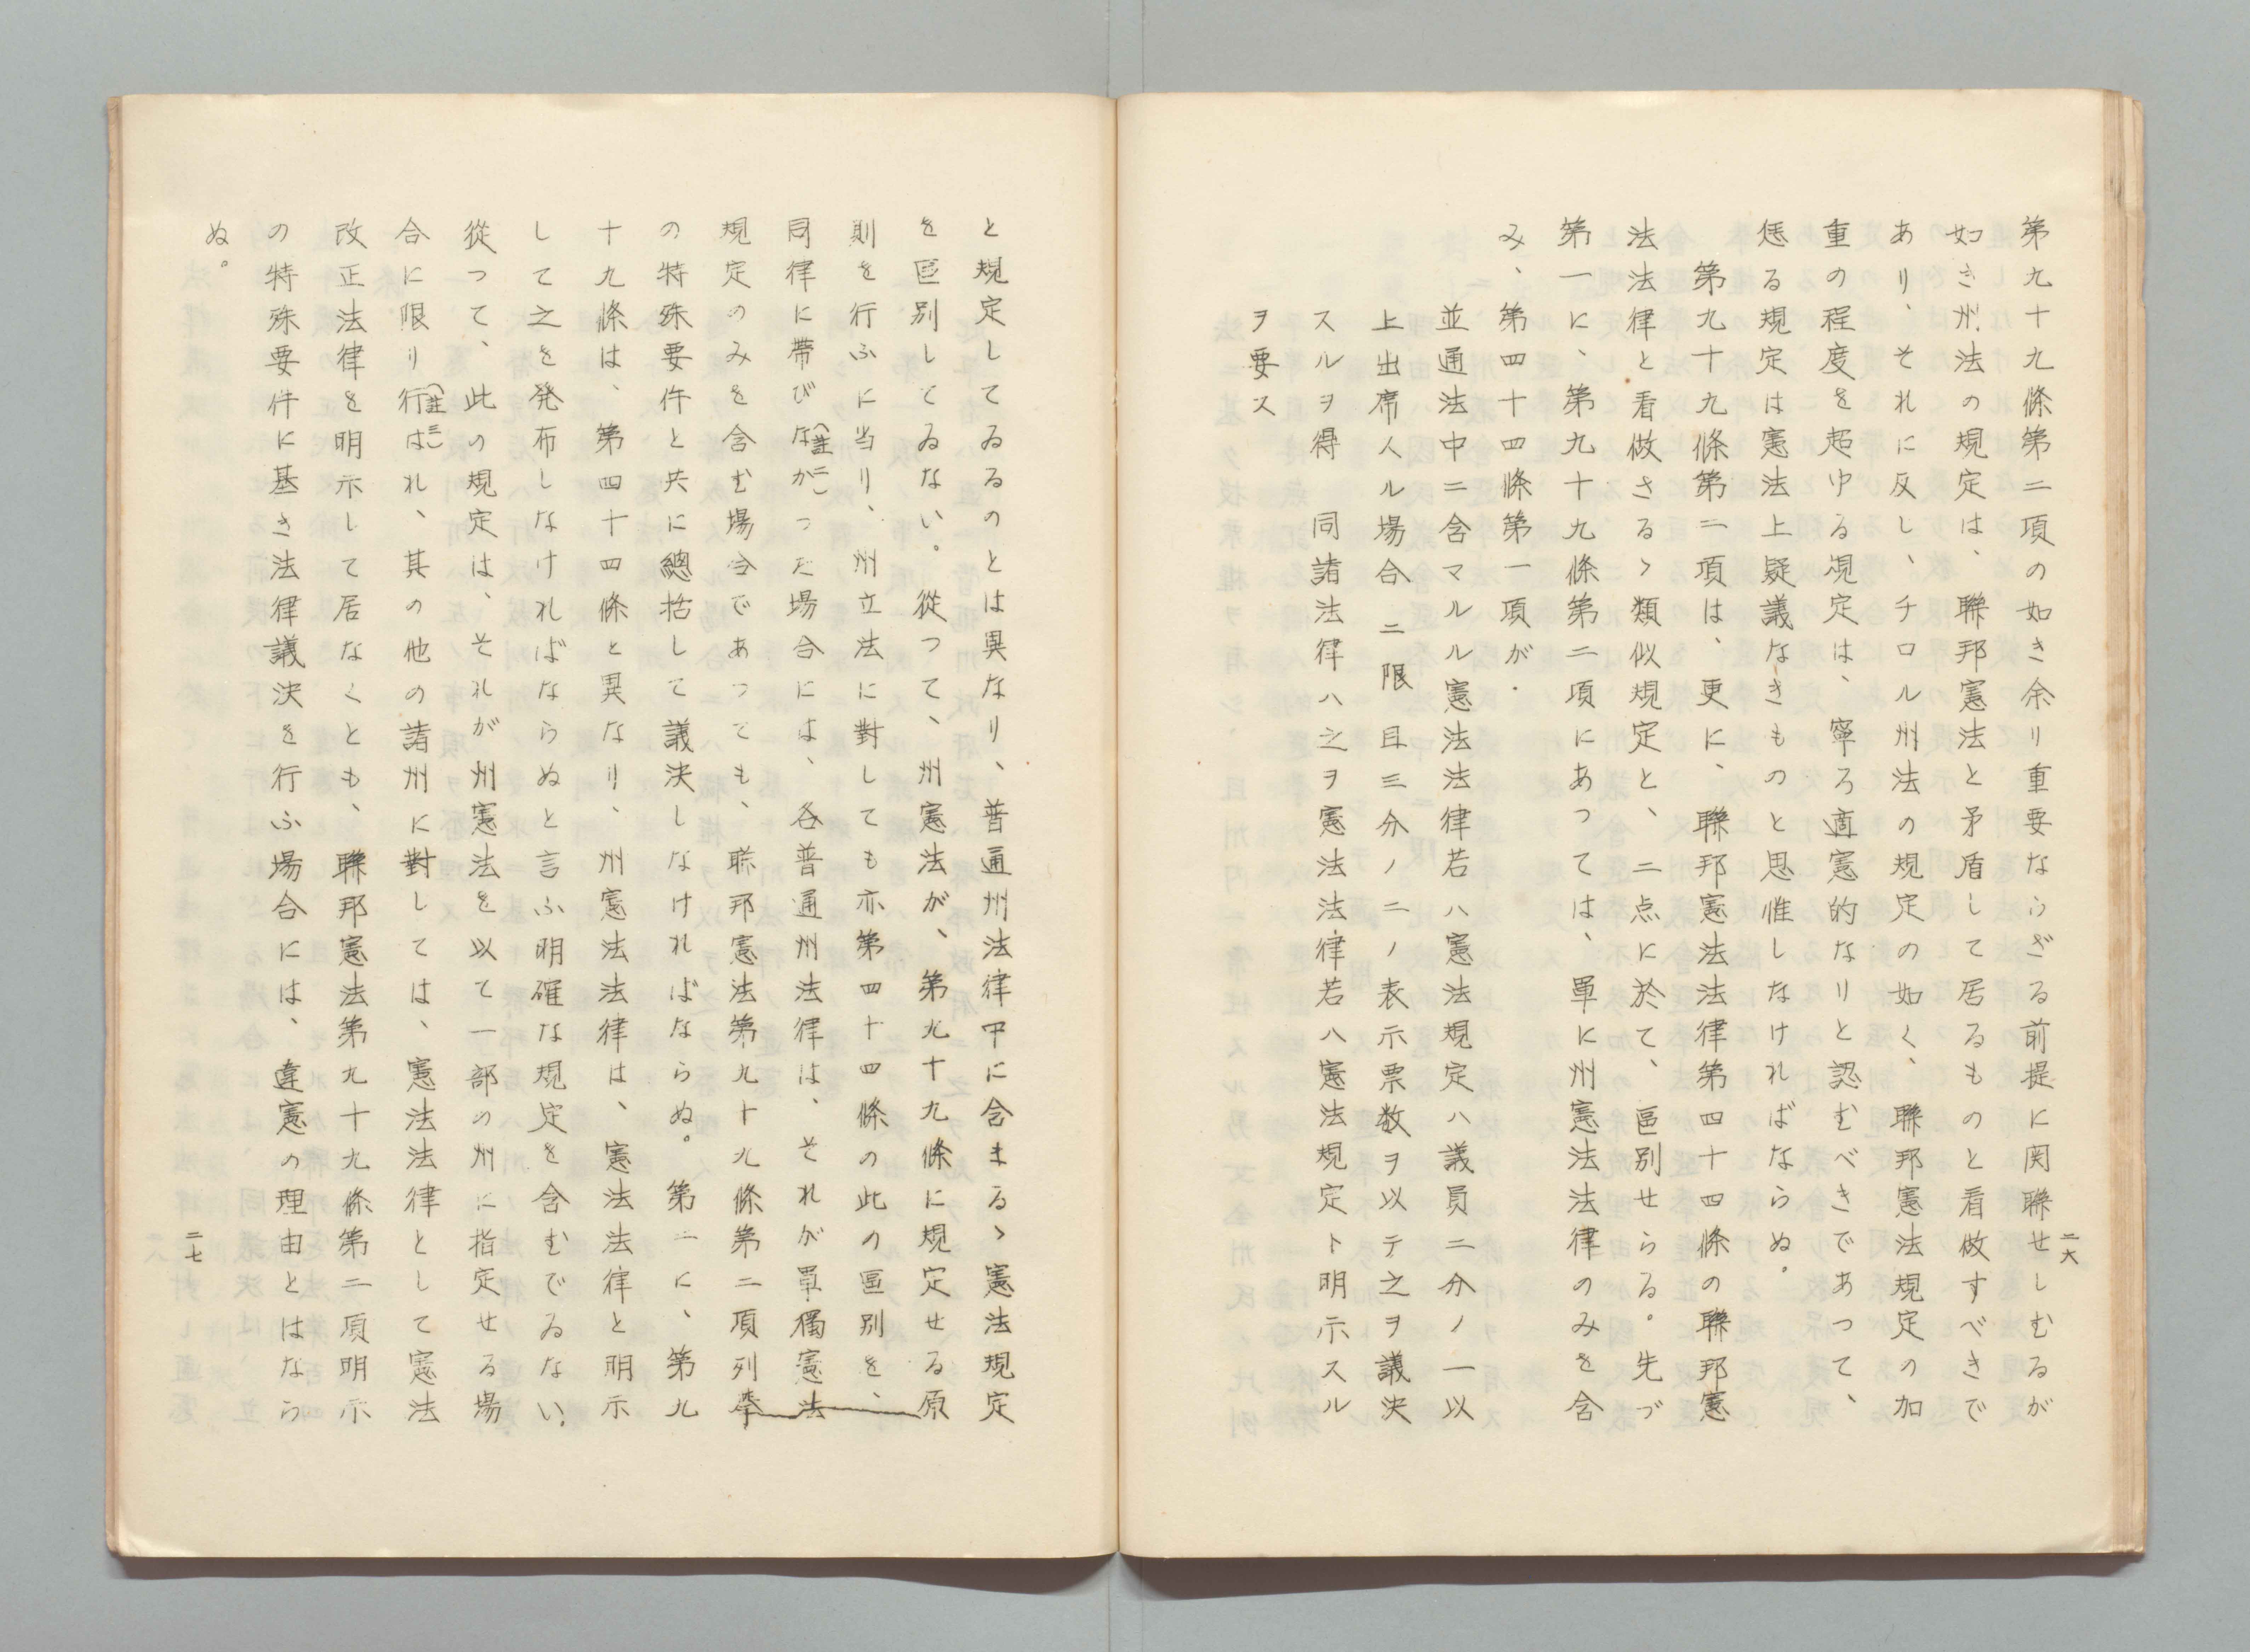 第九十九條第二項の如き余り重要ならざる前提に関聯せしむるが
如き州法の規定は、聯邦憲法と矛盾して居るものと看做すべきで
あり、それに反し、チロル州法の規定の如く、聯邦憲法規定の加
重の程度を超ゆる規定は、寧ろ適憲的なりと認むべきであって、
恁る規定は憲法上疑議なきものと思惟しなければならぬ。
第九十九條第二項は、更に、聯邦憲法法律第四十四條の聯邦憲
法法律と看做さるゝ類似規定と、二点に於て、區別せらる。先づ
第一に、第九十九條第二項にあつては、單に州憲法法律のみを含
み、第四十四條第一項が、
並通法中ニ含マルル憲法法律若ハ憲法規定ハ議員二分ノ一以
上出席人ル場合ニ限 且三分ノ二ノ表示票数ヲ以テ之ヲ議決
スルヲ得 同諸法律ハ之ヲ憲法法律若ハ憲法規定ト明示スル
ヲ要ス
二六
と規定してゐるのとは異なり、普通州法律中に含まるゝ憲法規定
を區別してゐない。從つて、州憲法が、第九十九條に規定せる原
則を行ふに当り、州立法に對しても亦第四十四條の此の區別を、
同律に帶びなかつた場合には、各普通州法律は、それが單獨憲法
(註二)
規定のみを含む場合であつても、聯邦憲法第九十九條第二項列擧
の特殊要件と共に總括して議決しなければならぬ。第二に、第九
十九條は、第四十四條と異なり、州憲法法律は、憲法法律と明示
して之を発布しなければならぬと言ふ明確な規定を含むでゐない、
從つて、此の規定は、それが州憲法を以て一部の州に指定せる場
合に限り行はれ、其の他の諸州に對しては、憲法法律として憲法
(註三)
改正法律を明示して居なくとも、聯邦憲法第九十九條第二項明示
の特殊要件に基き法律議決を行ふ場合には、違憲の理由とはなら
ぬ。
二七